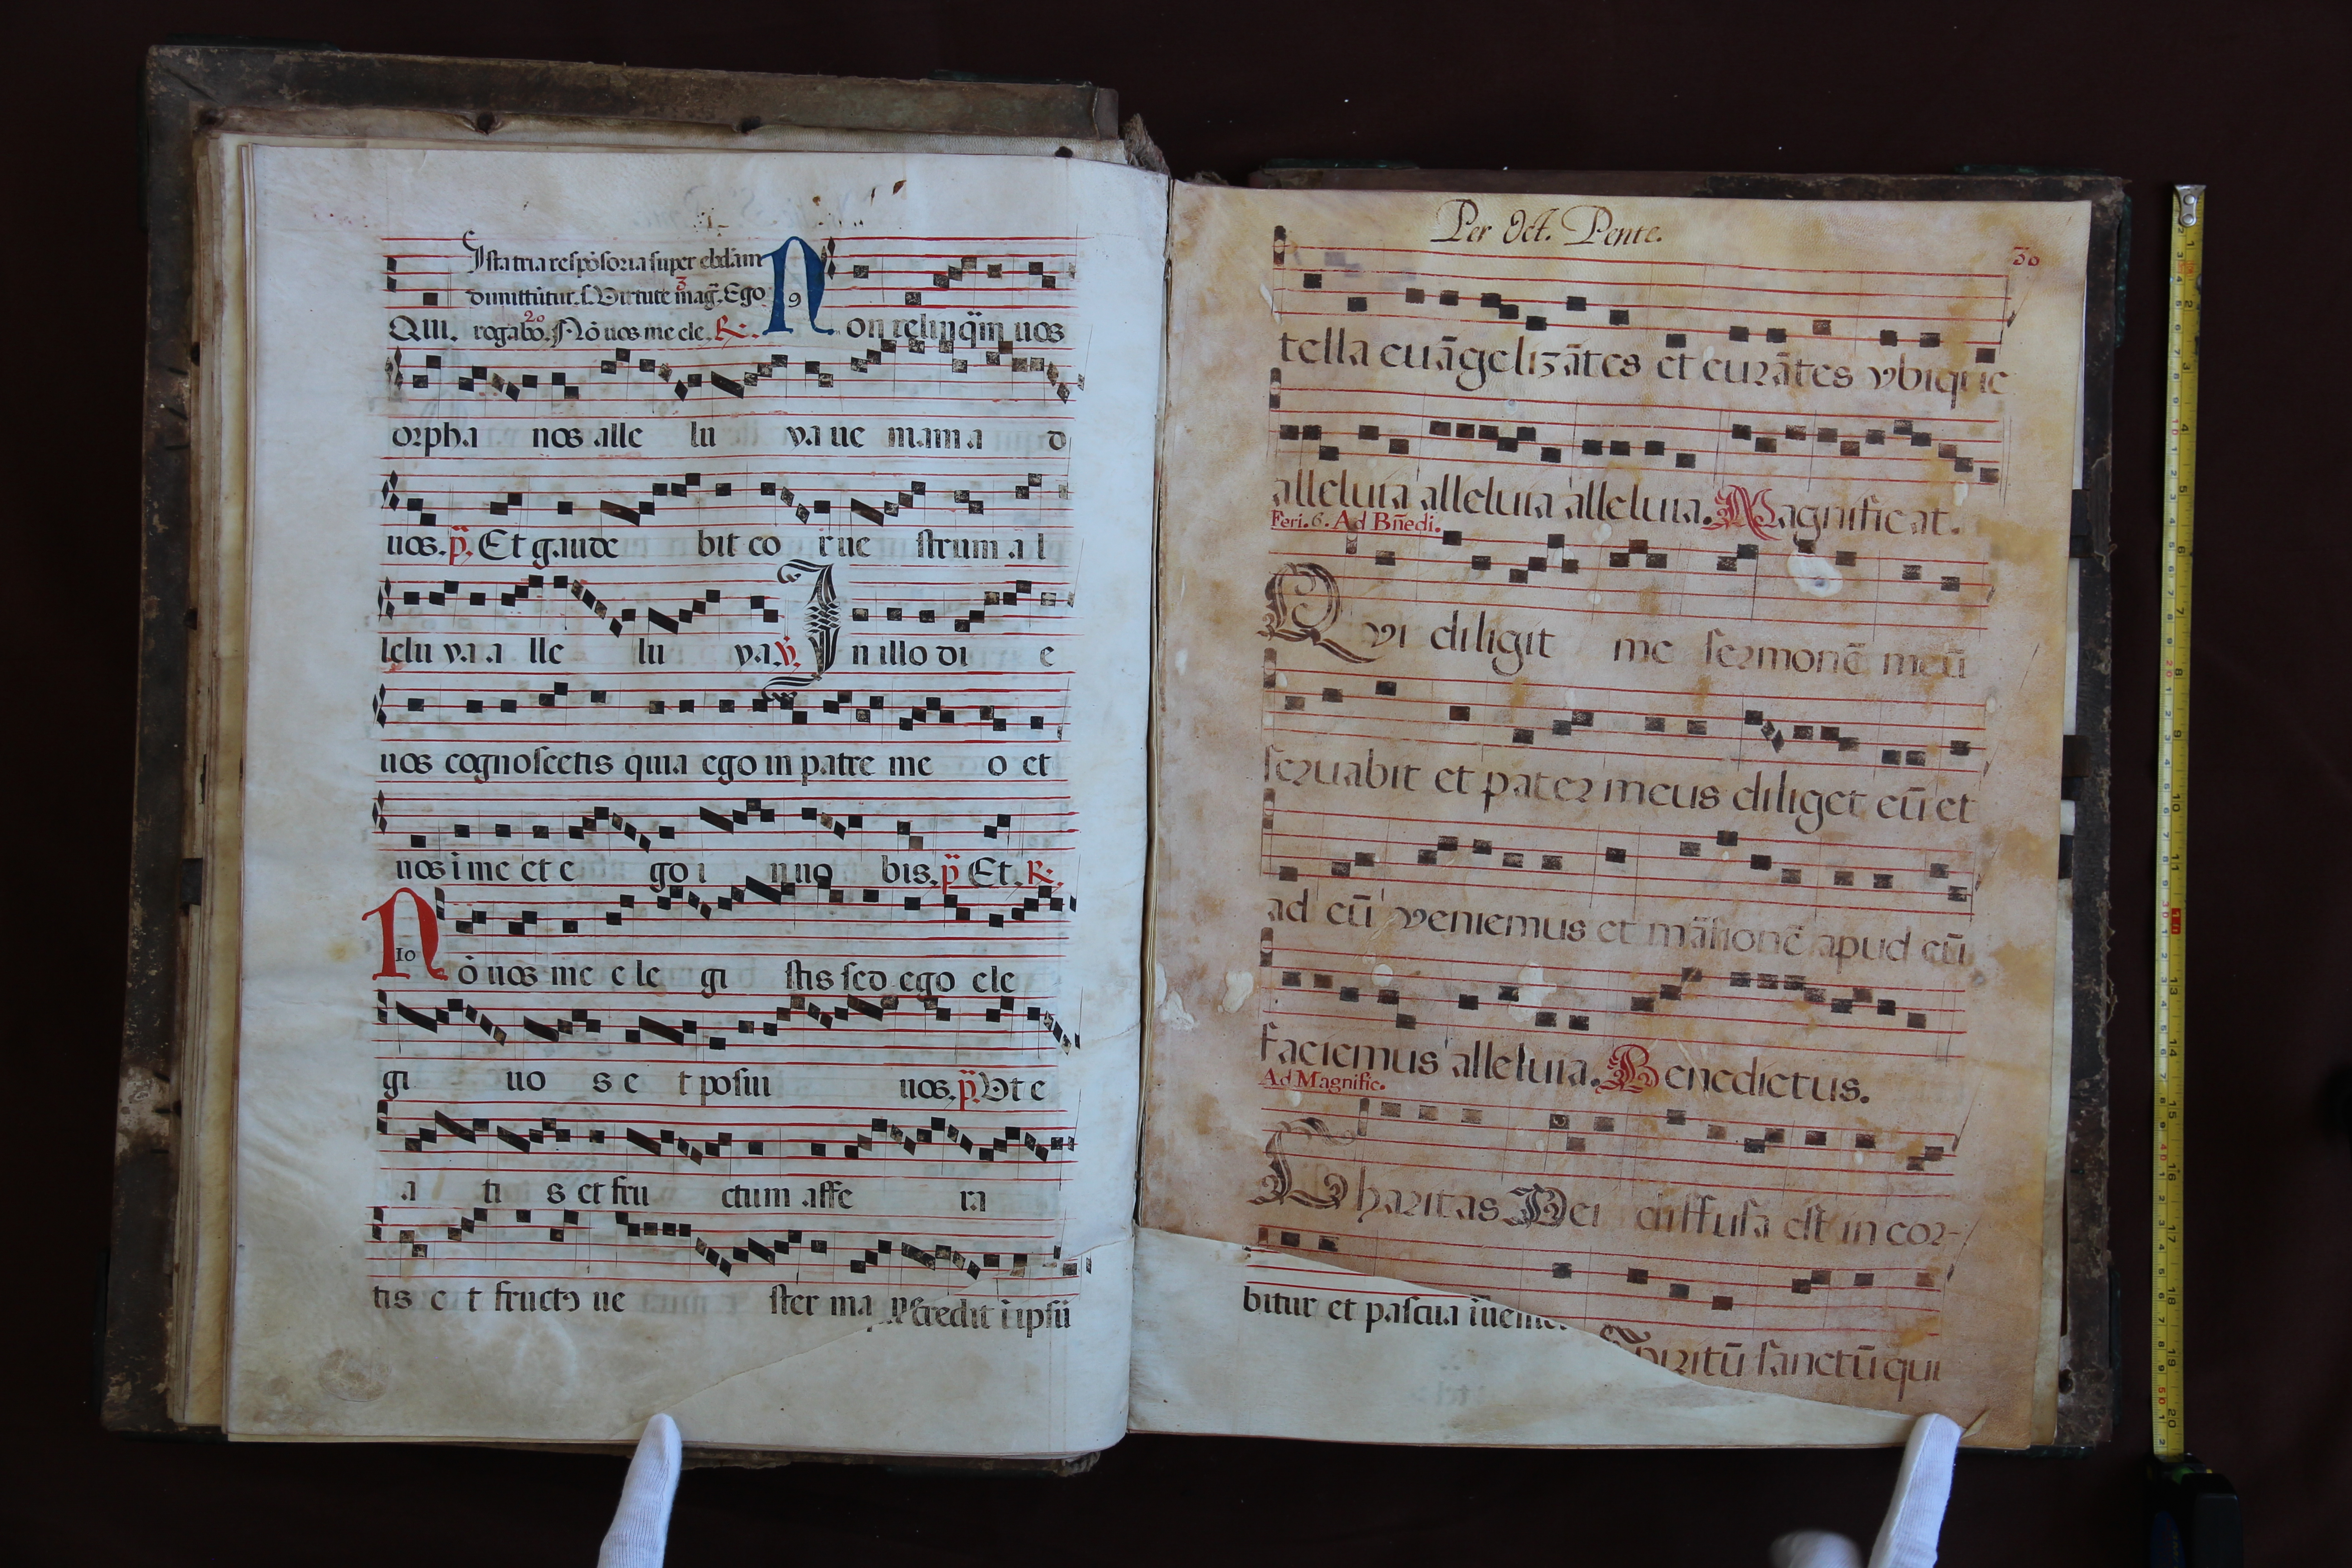 Ista tria respōsoria super ebdām
dimittūtur. s. Virtute mag̃. Ego
3
20
QUI. rogabo. Nō uos me ele. R. Non relinq̄m uos
9
orpha nos alle lu ya ue mam a d
uos. p̄. Et gaude bit co r ue strum a l
lelu ya a lle lu ya. v. In illo di e
uos cognoscetis quia ego in patre me o et
uos i me et e go i n uo bis. p̄ Et. R.
10
Nō uos me e le gi stis sed ego ele
gi uo s e t posui uos. p̄. Vt e
a ti s et fru ctum affe ra
tis e t fructꝰ ue ster ma ne
credit ī ipsū
Per Oct. Pente.
30
tella euāgelizātes et curātes vbique
alleluia alleluia alleluia. Magnificat.
Feri. 6. Ad Bñedi.
Qvi diligit me sermonē meū
seruabit et pater meus diliget eū et
ad eū veniemus et māsionē apud eū
faciemus alleluia. Benedictus.
Ad Magnific.
Charitas Dei diffusa est in cor-
bitur et pascua
spiritū sanctū qui